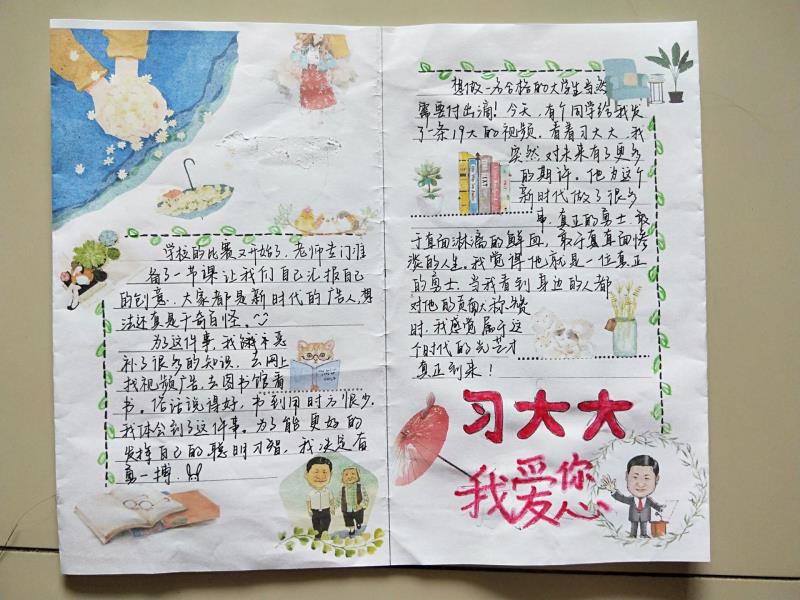 学校的比赛又开始了,老师专门准
备了一节课让我们自己汇报自己
的创意,大家都是新时代的广人,想
法还真是千奇百怪。
为了这件事,我饿不恶
补了很多的知识,去网上
找视频广告,去图书馆看
书。俗话说得好,书到用时方恨少,
我体会到了这件事。为了能更好的
发挥自己的聪明才智,我决定奋
勇一搏。
想做一名合格的大学生当然
需要付出滴!今天,有个同学给我发
了一条19大的视频。看着习大大,我
突然对未来有了更多
的期许。他为这个
新时代做了很多
事,真正的勇士,敢
于直面淋漓的鲜血,敢于直面惨
淡的人生。我觉得他就是一位真正
的勇士,当我看到身边的人都
对他的贡献大称赞
时,我感觉属于这
个时代的光芒才
真正到来!
习大大
我爱你